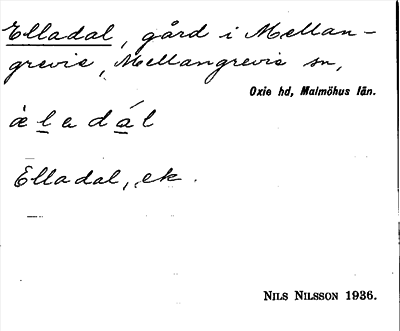 Elladal, gård i Mellan-
grevie, Mellangrevie sn,
Oxie hd, Malmöhus län.
æ̀ l a d á l
Elladal, ek.
Nils Nilsson 1936.